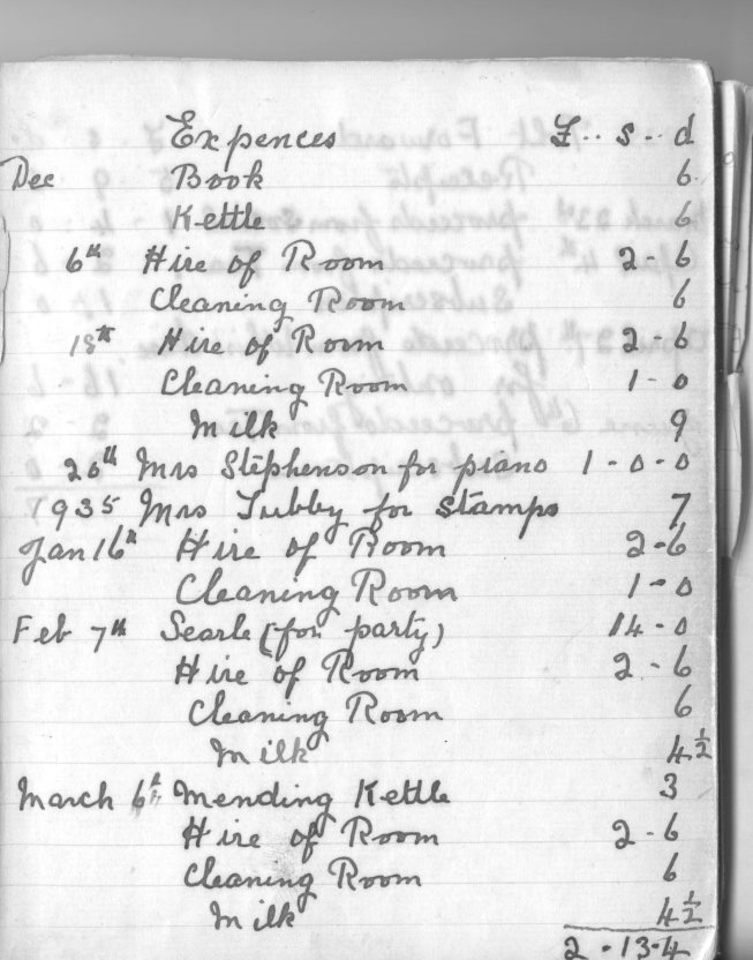 Expences £ .. s .. d
Dec Book 6
Kettle 6
6th Hire of Room 2 - 6
Cleaning Room 6
18th Hire of Room 2 - 6
Cleaning Room 1 - 0
Milk 9
20th Mrs Stephenson for piano 1 - 0 - 0
1935 Mrs Tubby for stamps 7
Jan 16th Hire of Room 2 - 6
Cleaning Room 1 - 0
Feb 7th Searle (for party) 14 - 0
Hire of Room 2 - 6
Cleaning Room 6
Milk 4 1/2
March 6th Mending Kettle 3
Hire of Room 2 - 6
Cleaning Room 6
Milk 4 1/2
2 - 13 - 4